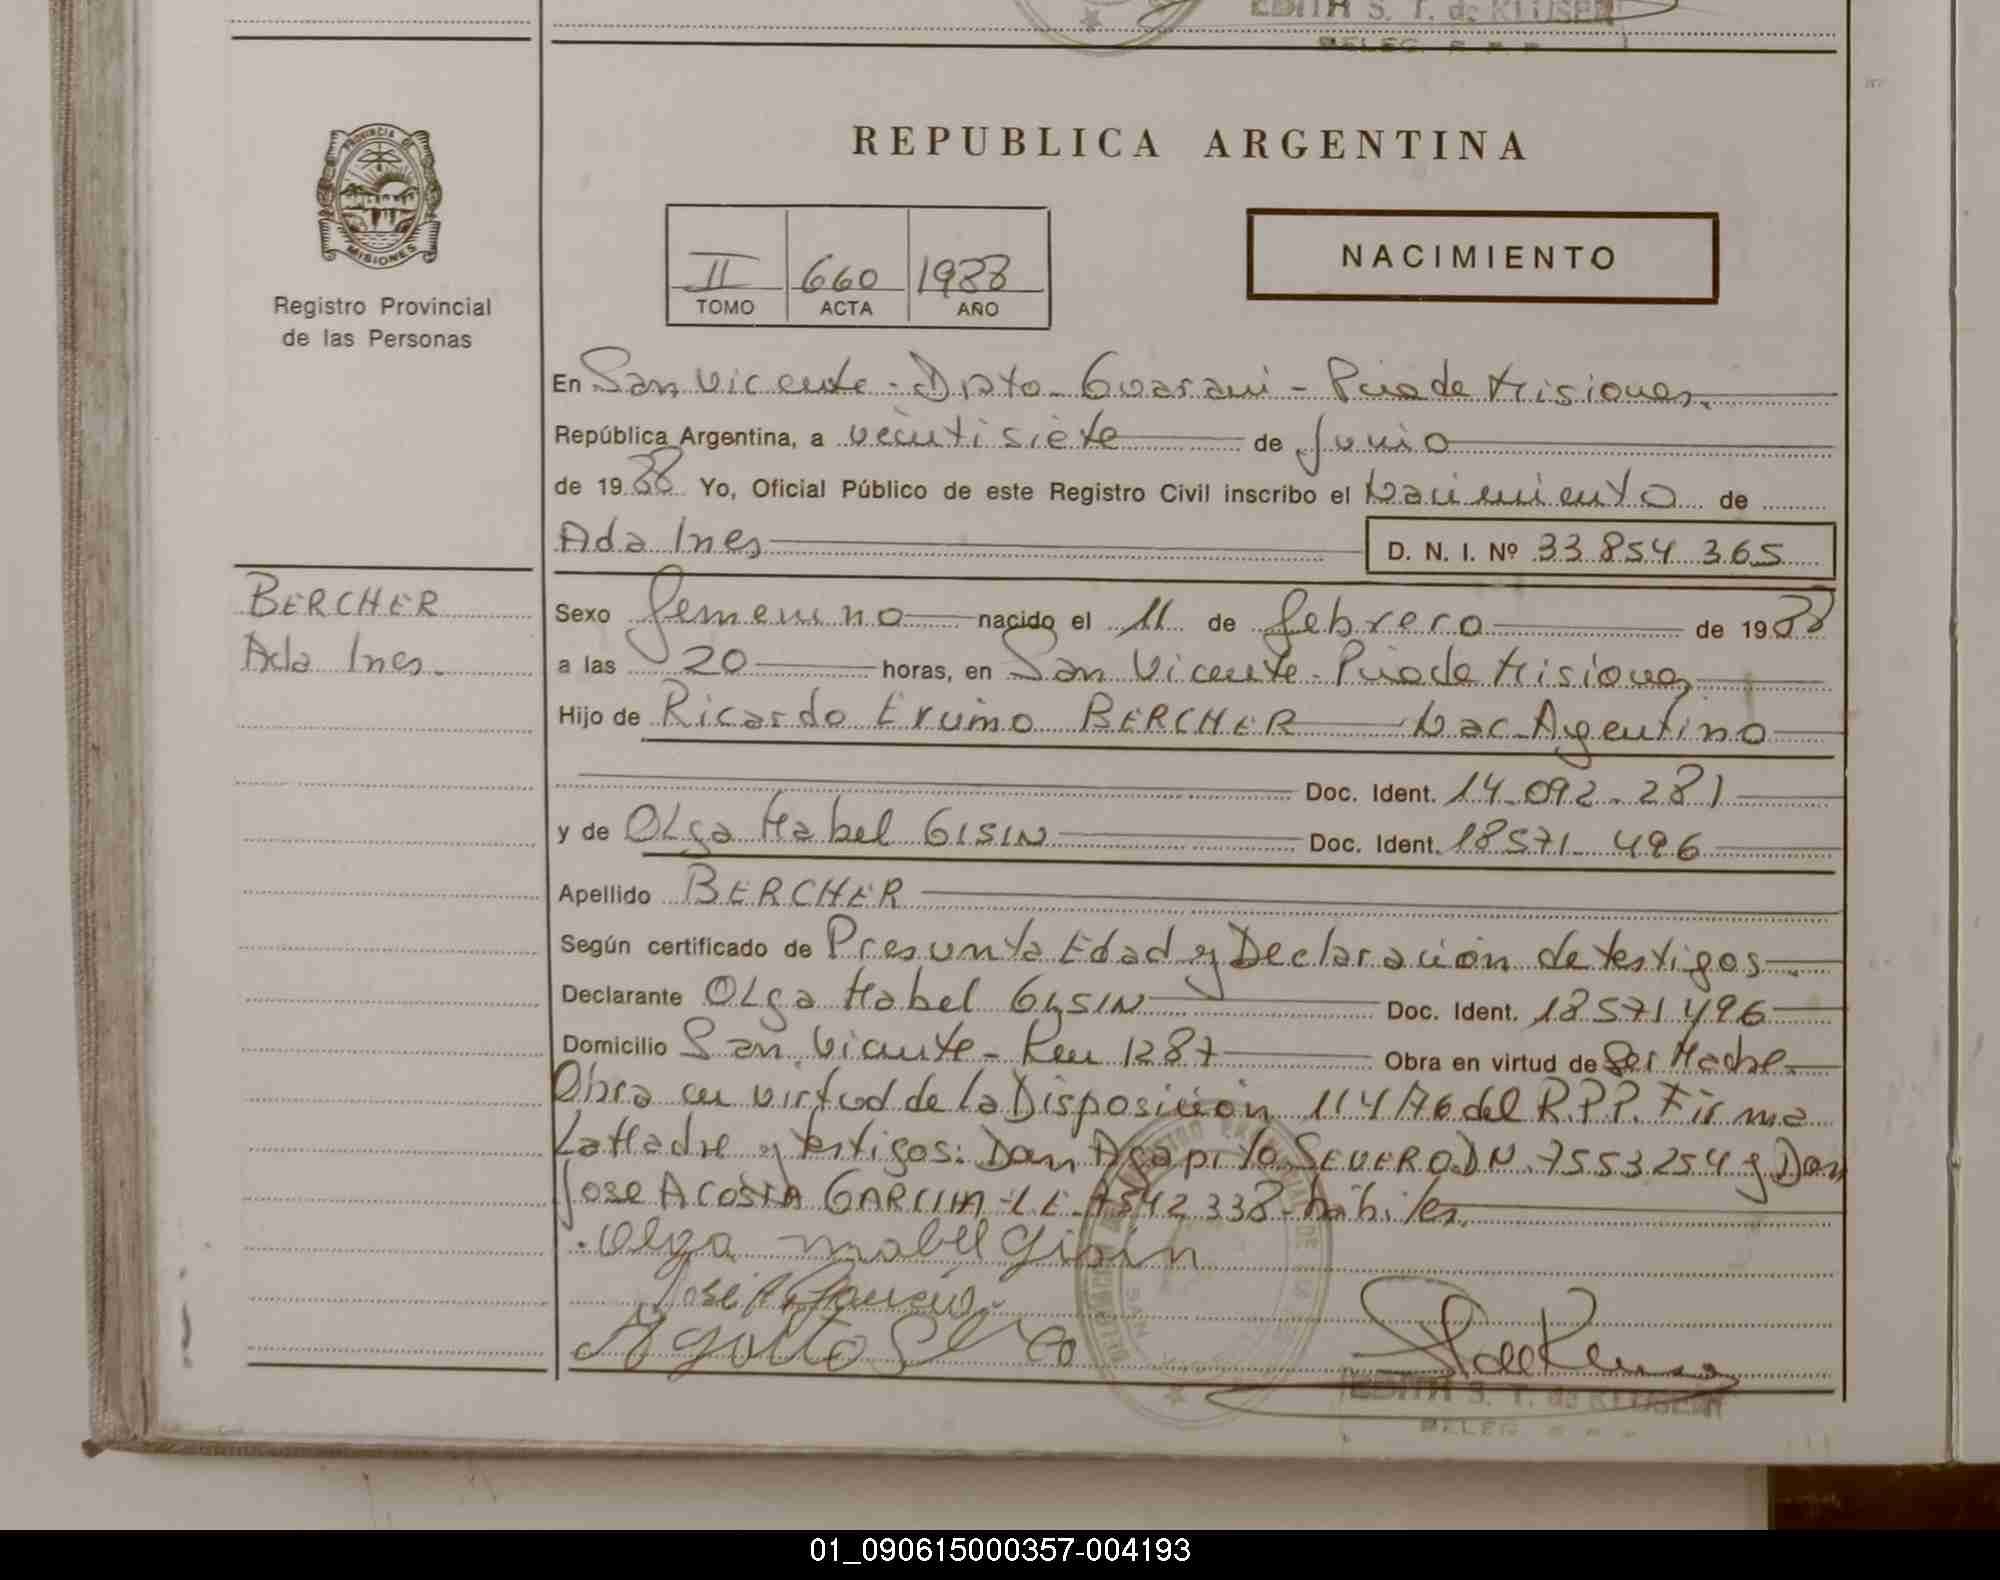 EDITH S. T. de KLUSEN
REPUBLICA ARGENTINA
PROVINCIA DE
MISIONES
Registro Provincial
de las Personas
II 660 1988
TOMO ACTA AÑO
NACIMIENTO
En San Vicente - Dpto Guarani - Pcia de Misiones.
República Argentina, a veintisiete de Junio
de 1988 Yo, Oficial Público de este Registro Civil inscribo el Nacimiento de
Ada Ines D. N. I. Nº 33.854.365
BERCHER
Ada Ines.
Sexo femenino nacido el 11 de febrero de 1988
a las 20 horas, en San Vicente - Pcia de Misiones
Hijo de Ricardo BERCHER Nac. Argentino
Doc. Ident. 14.092.281
y de OLga Mabel GISIN Doc. Ident. 18571 496
Apellido BERCHER
Según certificado de Presunta Edad y Declaración de testigos
Declarante OLga Mabel GISIN Doc. Ident. 18571496
Domicilio San Vicente - Km 1287 Obra en virtud de Ser Madre.
Obra en virtud de la Disposición 114/76 del R.P.P. Firma
La Madre y testigos: Don Agapito SEVERO D.N. 7553254 y Don
Jose ACOSTA GARCIA - L.E. 7542338 - hábiles.
Olga mabel Gisin
EDITH S. T. de KLUSEN
01_090615000357-004193